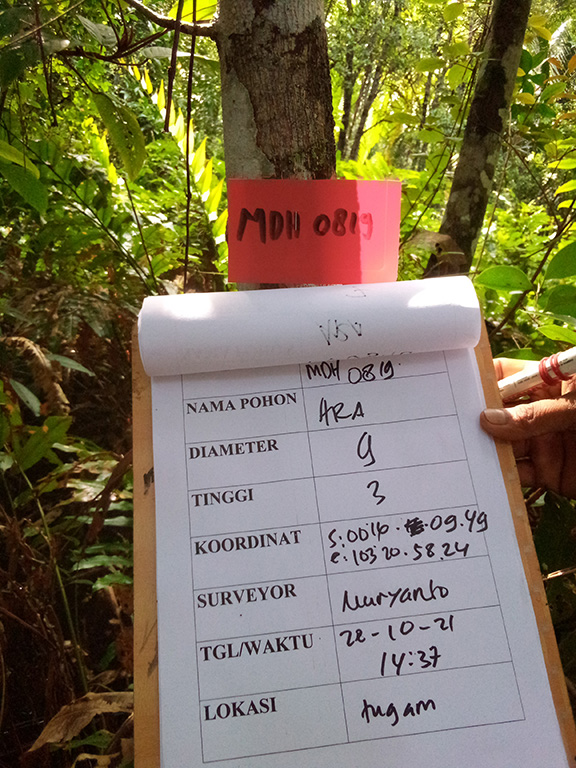 MDH 0819
MDH
0819
NAMA POHON ARA
DIAMETER 9
TINGGI 3
KOORDINAT S:0010. 09.49
e:10320.58.24
SURVEYOR Nuryanto
TGL/WAKTU 28-10-21
14:37
LOKASI tugam